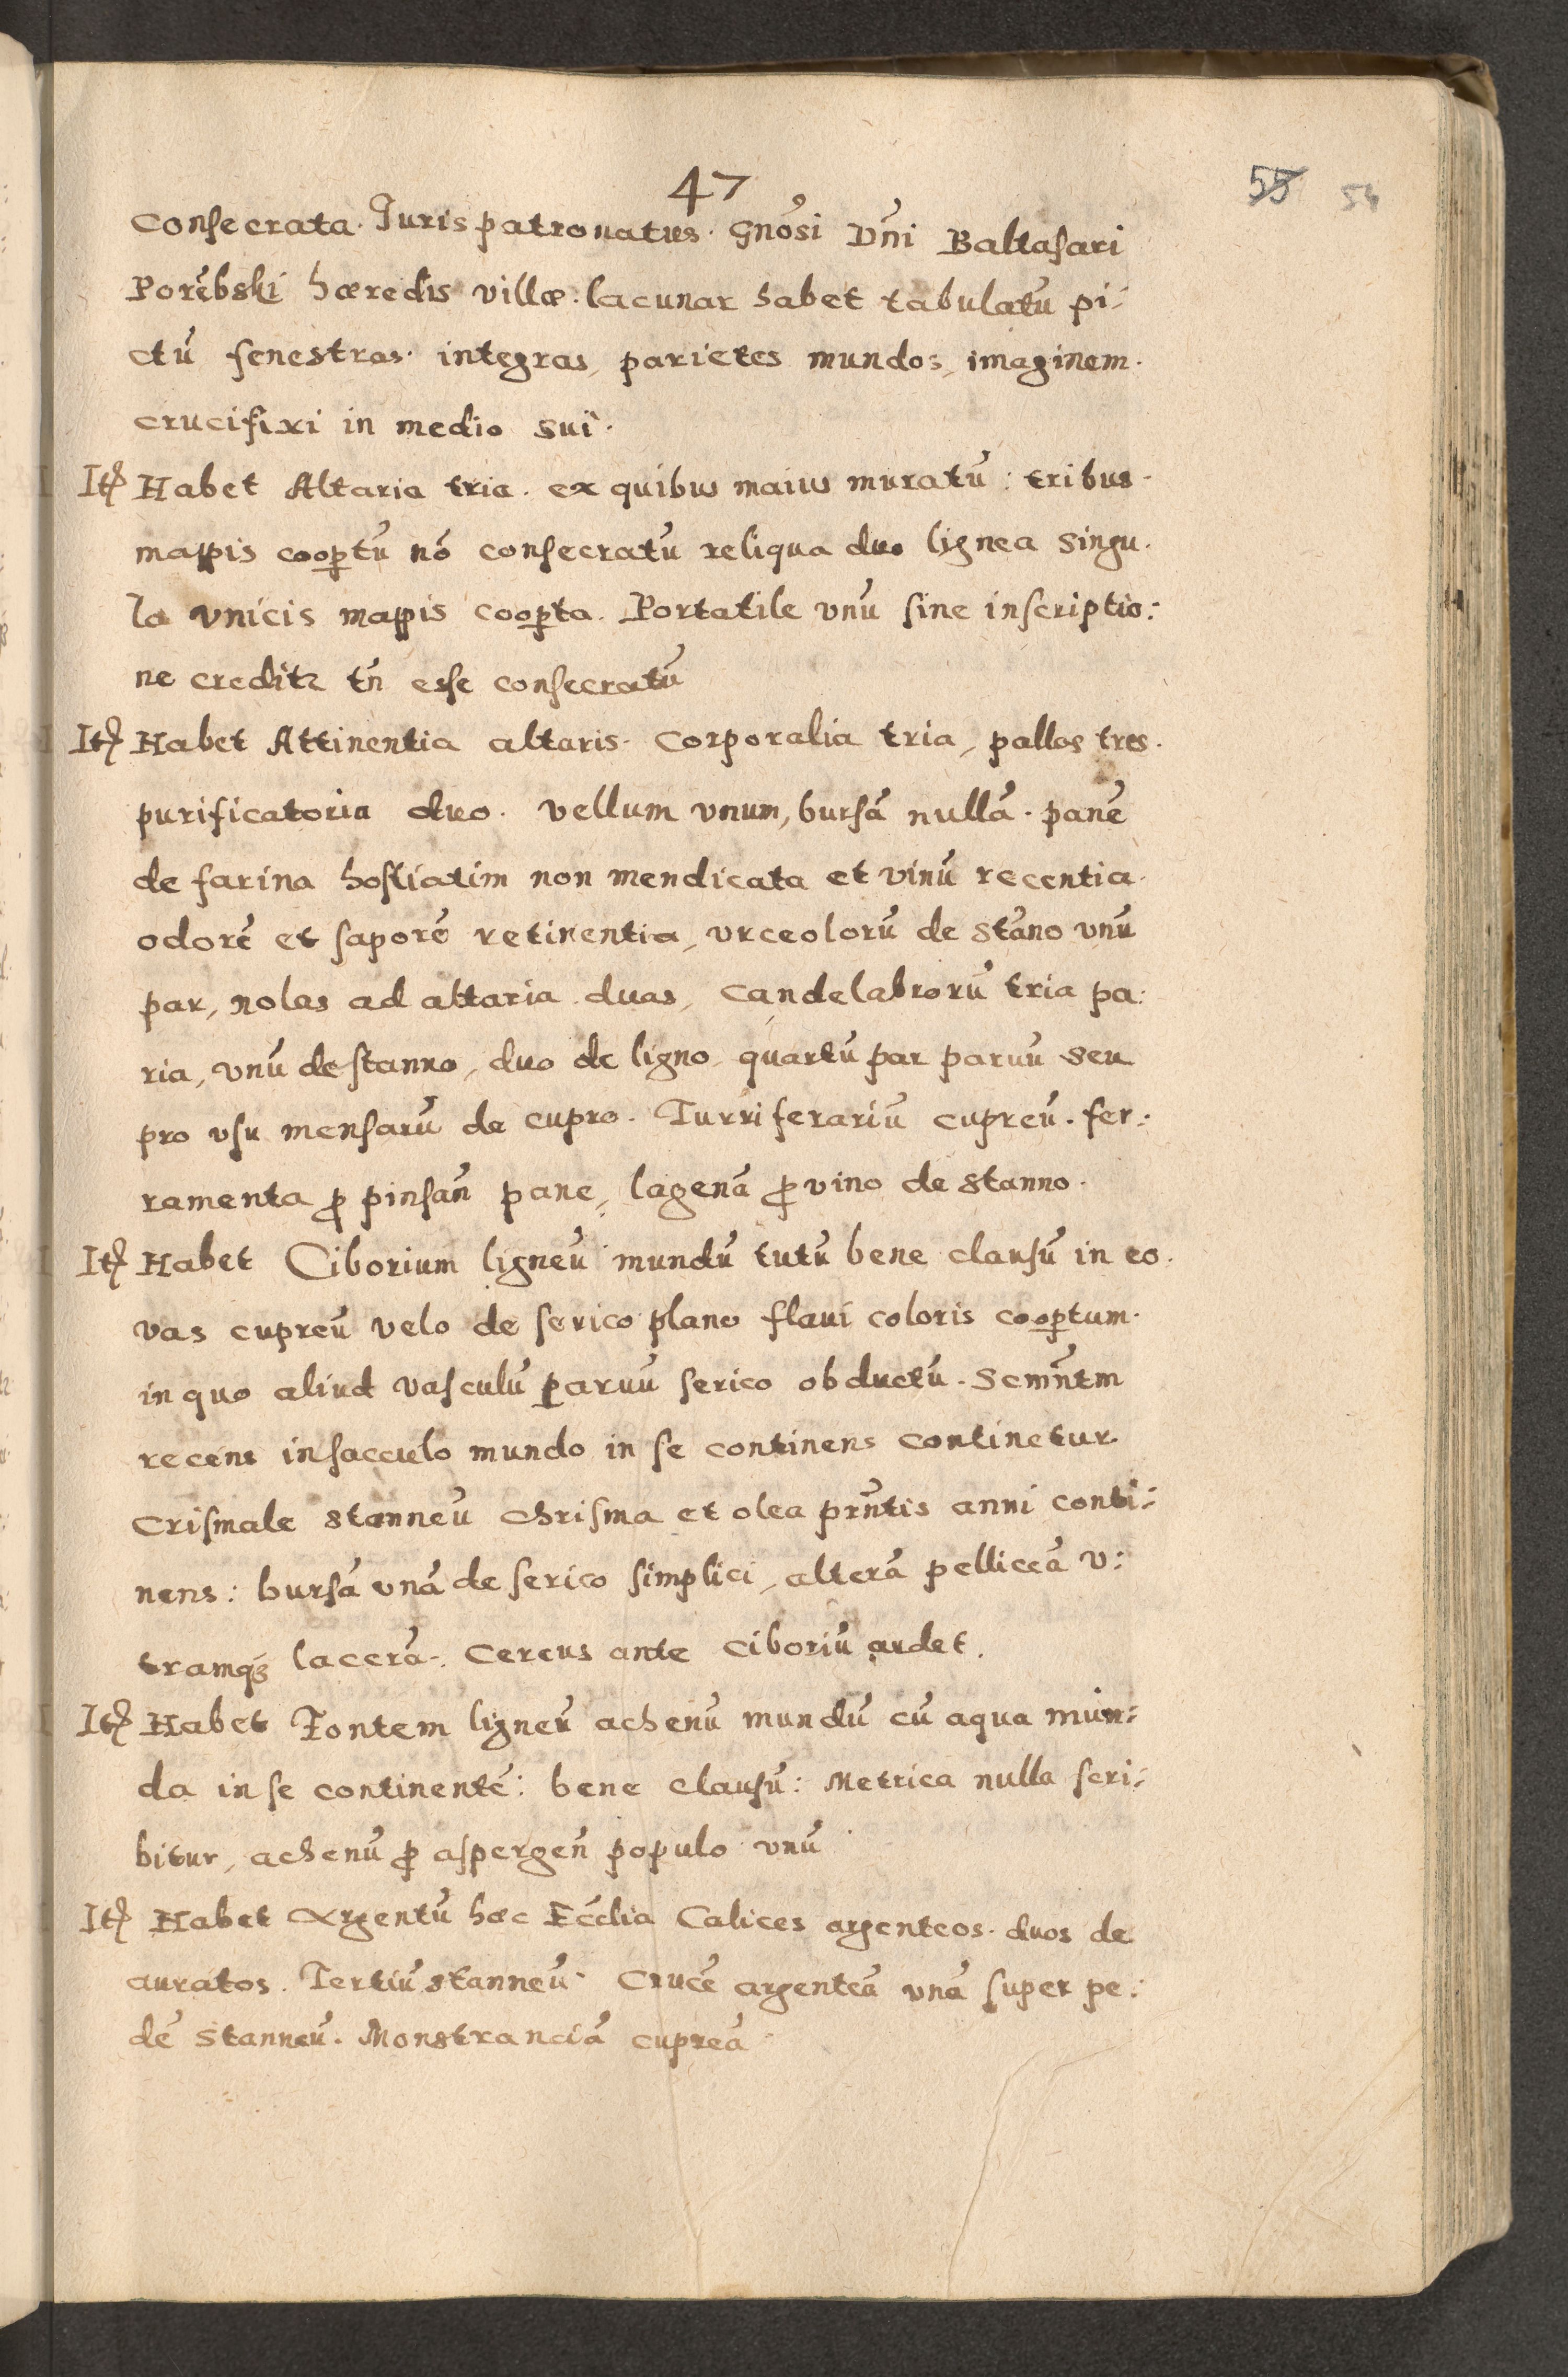 47
55 54
consecrata. Juris patronatus. Gnősi Dñi Baltasari
Porębski hæredis villæ. lacunar habet tabulatū pi-
ctū fenestras. integras, parietes mundos, imaginem.
crucifixi in medio sui.
Itē Habet Altaria tria. ex quibus maius muratū: tribus.
mappis coopertū nō consecratū reliqua duo lignea singu.
la vnicis mappis cooperta. Portatile vnū sine inscriptio:
ne creditr tñ esse consecratū
Itē Habet Attinentia altaris. Corporalia tria, pallas tres.
purificatoria duo. vellum vnum, bursā nullā. panē
de farina hostiatim non mendicata et vinū recentia.
odorē et saporē retinentia, vrceolorū de stāno vnū
par, nolas ad altaria duas, candelabrorū tria pa:
ria, vnū de stanno, duo de ligno quartū par paruū seu
pro vsu mensarū de cupro. Turriferariū cupreū. fer:
ramenta ꝓ pinsañ pane, lagenā ꝓ vino de stanno.
Itē Habet Ciborium ligneū mundū tutū bene clausū in eo.
vas cupreū velo de serico plano flaui coloris coopertum.
in quo aliud vasculū paruū serico obductū. Scm̃ntm
recens in sacculo mundo in se continens continetur.
Crismale stanneū chrisma et olea pr̃ntis anni conti:
nens: bursā vnā de serico simplici, alterā pelliceā v:
tramqȝ lacerā. Cereus ante ciboriū ardet.
Itē Habet Fontem ligneū achenū mundū cū aqua mun:
da in se continentē: bene clausū: Metrica nulla scri:
bitur, achenū ꝓ aspergeñ populo vnū
Itē Habet Argentū hæc Eccłia Calices argenteos. duos de
auratos. Tertiū stanneū. Crucē argenteā vnā super pe:
dē stanneū. Monstranciā cupreā